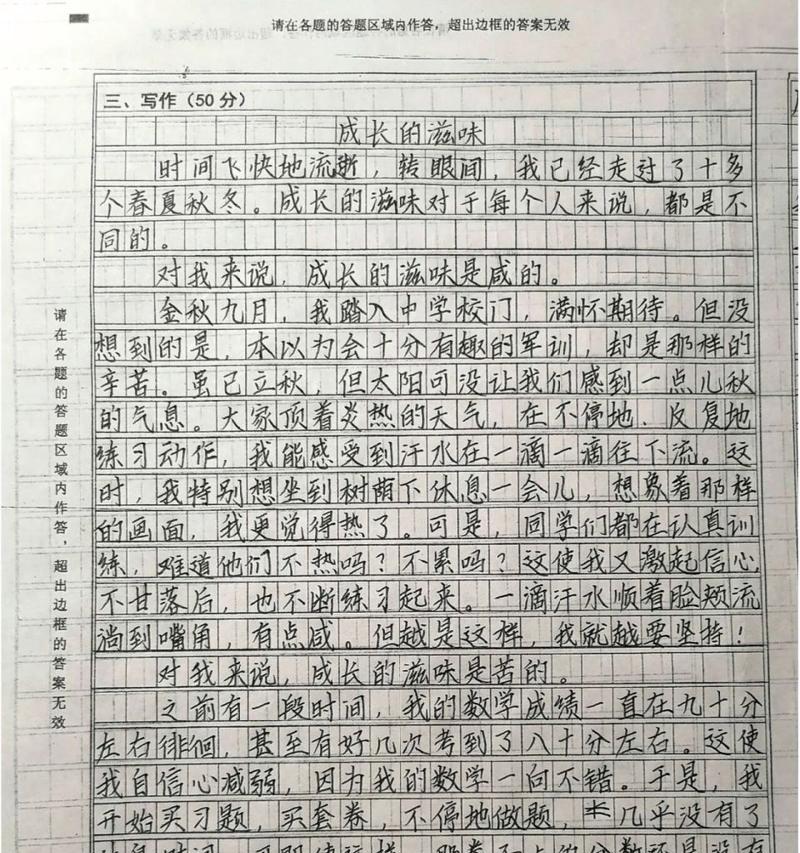 请在各题的答题区域内作答，超出边框的答案无效
三、写作（50分）
成长的滋味
时间飞快地流逝，转眼间，我已经走过了十多
个春夏秋冬。成长的滋味对于每个人来说，都是不
同的。
对我来说，成长的滋味是咸的。
金秋九月，我踏入中学校门，满怀期待。但没
想到的是，本以为会十分有趣的军训，却是那样的
辛苦。虽已立秋，但太阳可没让我们感到一点儿秋
的气息。大家顶着炎热的天气，在不停地、反复地
练习动作，我能感受到汗水在一滴一滴往下流。这
时，我特别想坐到树荫下休息一会儿，想象着那样
的画面，我更觉得热了。可是，同学们都在认真训
练，难道他们不热吗？不累吗？这使我又激起信心，
不甘落后，也不断练习起来。一滴汗水顺着脸颊流
淌到嘴角，有点咸。但越是这样，我就越要坚持！
对我来说，成长的滋味是苦的。
之前有一段时间，我的数学成绩一直在九十分
左右徘徊，甚至有好几次考到了八十分左右。这使
我自信心减弱，因为我的数学一向不错。于是，我
开始买习题，买套卷，不停地做题，几乎没有了
请在各题的答题区域内作答，超出边框的答案无效